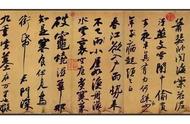 卧聞海棠花泥
汙燕支雪闇中偷負
去夜半真有力何殊
少年病起頭已白
春江欲入户雨勢来
不已雨小屋如漁舟濛濛
水雲裏空庖煮寒菜
破竈燒濕葦那知
是寒食但見烏
銜帋君門深
九重墳墓在万里